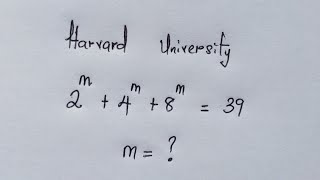 Harvard University
2^m + 4^m + 8^m = 39
m = ?